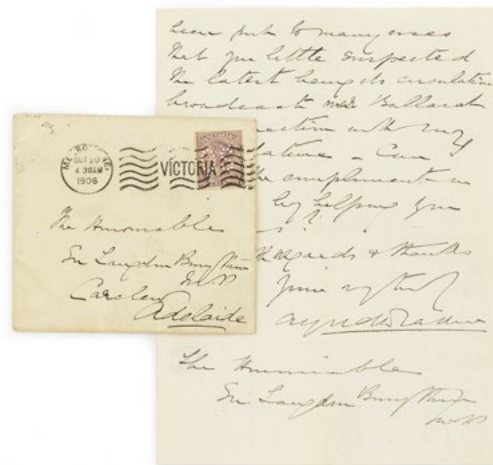 been put to many uses
that you little suspected
the latest being its circulation
broadcast over Ballarat
with my
Can
the compliment
by helping you
regards & thanks
The Honorable
Sir Langdon Bonython
MELBOURNE
OCT 20
4 30AM
1906
VICTORIA
The Honorable
Sir Langdon Bonython
M.P.
Carclew
Adelaide